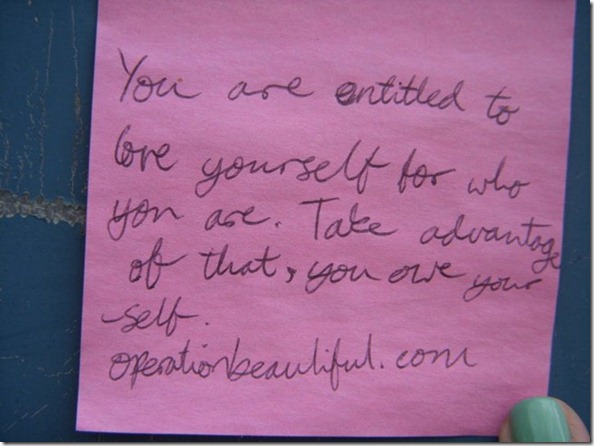 You are entitled to
love yourself for who
you are. Take advantage
of that, you owe your
-self.
operationbeautiful.com